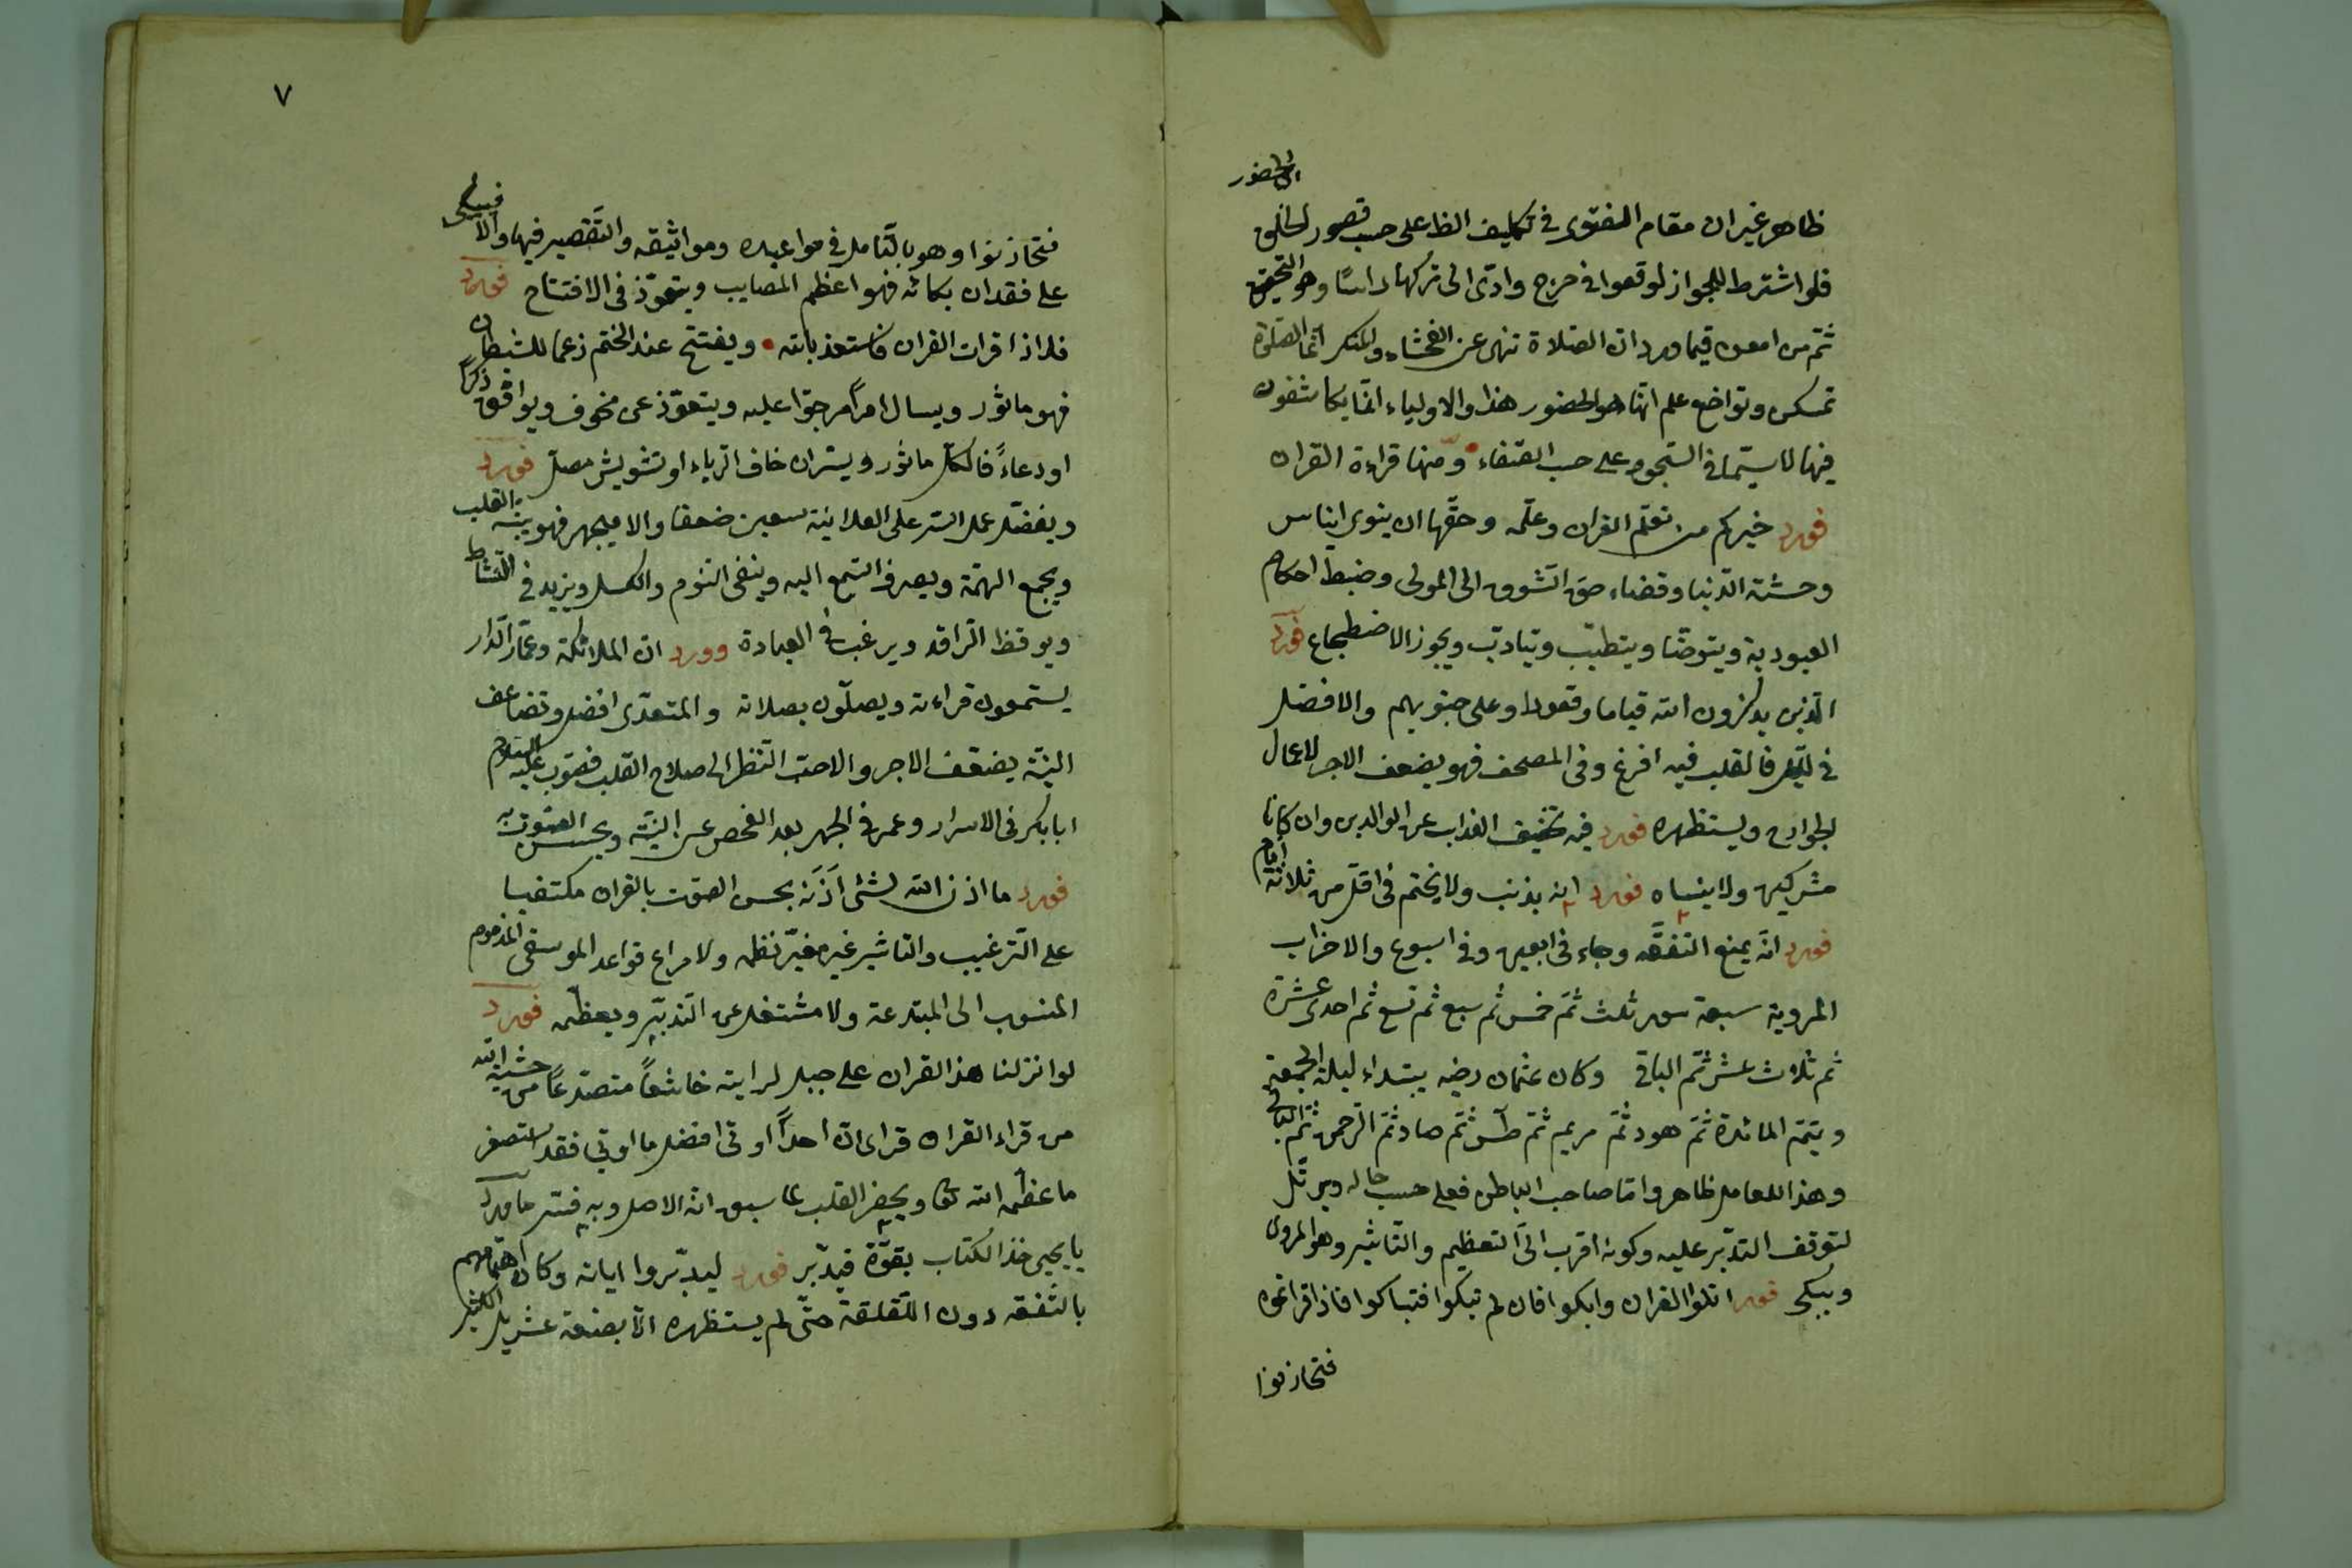 الحضور
ظاهر غير ان مقام الفتوى فى تكليف الظ على حسب قصور الخلق
فلو اشترط للجواز لوقعوا فى حرج وادّى الى تركها راسًا وهو التحقيق
ثمّ من امعن فيما ورد ان الصّلاة تنهى عن الفحشاء والمنكر انّما الصّلوة
تمسكن وتواضع علم انّها هو الحضور هذا والاولياء انّما يكاشفون
فيها لا سيّما فى السّجود على حسب الصّفاء ومنها قراءة القران
فورد خيركم من تعلّم القران وعلّمه وحقّها ان ينوى ايناس
وحشة الدّنيا وقضاء حق الشّوق الى المولى وضبط احكام
العبودية ويتوضّا ويتطيّب ويتادّب ويجوز الاضطجاع فورد
الّذين يذكرون الله قياما وقعودا وعلى جنوبهم والافضل
فى اللّيل فالقلب فيه افرغ وفى المصحف فهو يضعف الاجر لاعمال
الجوارح ويستظهره فورد فيه تخفيف العذاب عن الوالدين وان كانا
مشركين ولا ينساه فورد انه يذنب ولا يختم فى اقلّ من ثلاثة ايّام
فورد انّه يمنع التفقّه وجاء فى اربعين وفى اسبوع والاحزاب
المروية سبعة سور ثلث ثمّ خمس ثم سبع ثم تسع ثم احدى عشرة
ثم ثلاث عشر ثمّ الباقى وكان عثمان رضه يبتداء ليلة الجمعة
ويتمّ المائدة ثمّ هود ثمّ مريم ثمّ طس ثمّ صاد ثمّ الرّحمن ثمّ الباقى
وهذا للعامل ظاهر وامّا صاحب الباطن فعلى حسب حاله ويرتّل
لتوقف التدبّر عليه وكونه اقرب الى التعظيم والتّاثير وهو المروى
ويبكى فورد اتلوا القران وابكوا فان لم تبكوا فتباكوا فاذا قراتموه
فتحازنوا
٧
فتحازنوا وهو بالتّامل فى مواعيده ومواثيقه والتّقصير فيها والّا فيبكى
على فقدان بكائه فهو اعظم المصايب ويتعوّذ فى الافتتاح فورد
فاذا قرات القران فاستعذ بالله ويفتتح عند الختم زعما للشيطان
فهو ماثور ويسال امرًا مرجوّا عليه ويتعوّذ عن مخوف ويوافق ذكرًا
او دعاءً فالكلّ ماثور ويسرّ ان خاف الرّياء او تشويش مصلّ فورد
ويفضّل عمل السّر على العلانية سبعين ضعفا والا فيجهر فهو ينبّه القلب
ويجمع الهمّة ويصرف السّمع اليه وينفى النّوم والكسل ويزيد فى النّشاط
ويوقظ الرّاقد ويرغب فى العبادة وورد ان الملائكة وعمّار الدّار
يستمعون قراءته ويصلّون بصلاته والمتعدّى افضل وتضاعف
النيّة يضعّف الاجر والاحبّ النّظر الى صلاح القلب فصوّب عليه السّلام
ابا بكر فى الاسرار وعمر فى الجهر بعد الفحص عن النيّة ويحسن الصّوت به
فورد ما اذن الله لشئ اَذَنَه بحسن الصّوت بالقران مكتفيا
على التّرغيب والتاثير غير مغيّر نظمه ولا مراع قواعد الموسيقى المذموم
المنسوب الى المبتدعة ولا مشتغل عن التّدبّر ويعظّمه فورد
لو انزلنا هذا القران على جبل لرايته خاشعًا متصدّعًا من خشية الله
من قراء القران فراى ان احدًا اوتى افضل ما اوتى فقد استصغر
ما عظّمه الله تعا ويحضر القلب لما سبق انه الاصل وبه فسّر ما ورد
يا يحيى خذ الكتاب بقوّة فيدبّر فورد ليدبّروا اياته وكان اهتمامهم
بالتّفقه دون اللّقلقة حتّى لم يستظهره الّا بضعة عشر بل اكثر